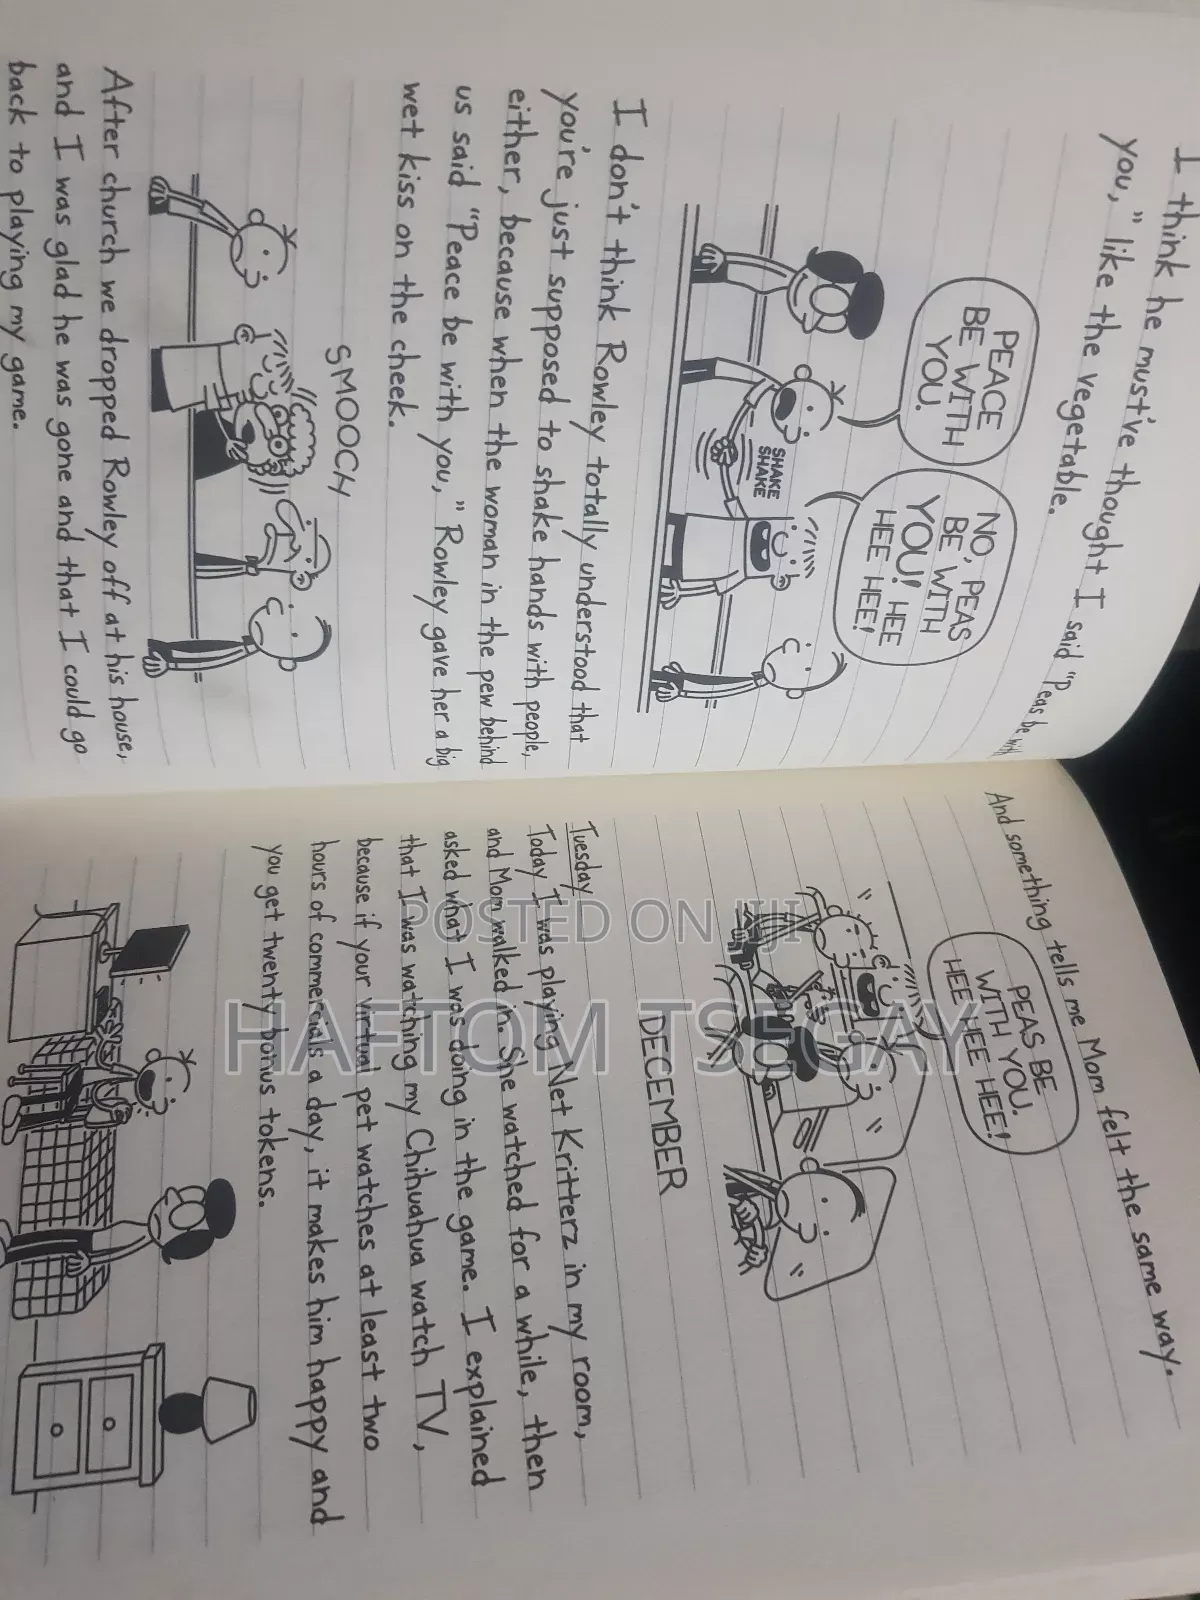 I think he must've thought I said "Peas be with
you," like the vegetable.
PEACE
BE WITH
YOU.
NO, PEAS
BE WITH
YOU! HEE
HEE HEE!
SHAKE
SHAKE
I don't think Rowley totally understood that
you're just supposed to shake hands with people,
either, because when the woman in the pew behind
us said "Peace be with you," Rowley gave her a big
wet kiss on the cheek.
SMOOCH
After church we dropped Rowley off at his house,
and I was glad he was gone and that I could go
back to playing my game.
And something tells me Mom felt the same way.
PEAS BE
WITH YOU.
HEE HEE HEE!
DECEMBER
Tuesday
Today I was playing Net Kritterz in my room,
and Mom walked in. She watched for a while, then
asked what I was doing in the game. I explained
that I was watching my Chihuahua watch TV,
because if your virtual pet watches at least two
hours of commercials a day, it makes him happy and
you get twenty bonus tokens.
POSTED ON JIJI
HAFTOM TSEGAY